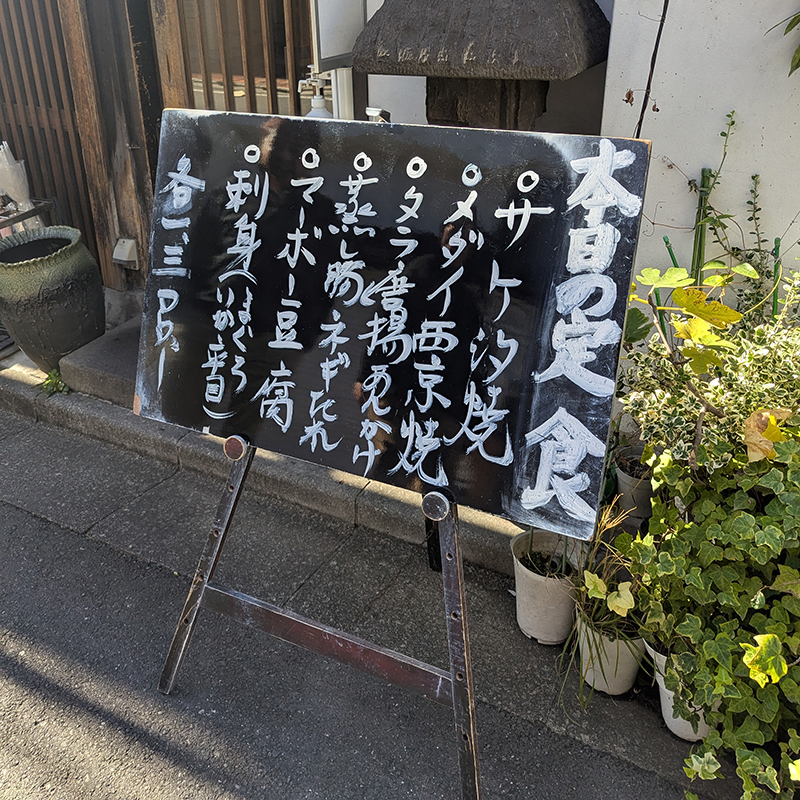 本日の定食
○サケ汐焼
○メダイ西京焼
○タラ唐揚あんかけ
○蒸し豚ネギだれ
○マーボー豆腐
○刺身(まぐろ
いか平目)
各一、三〇〇ー